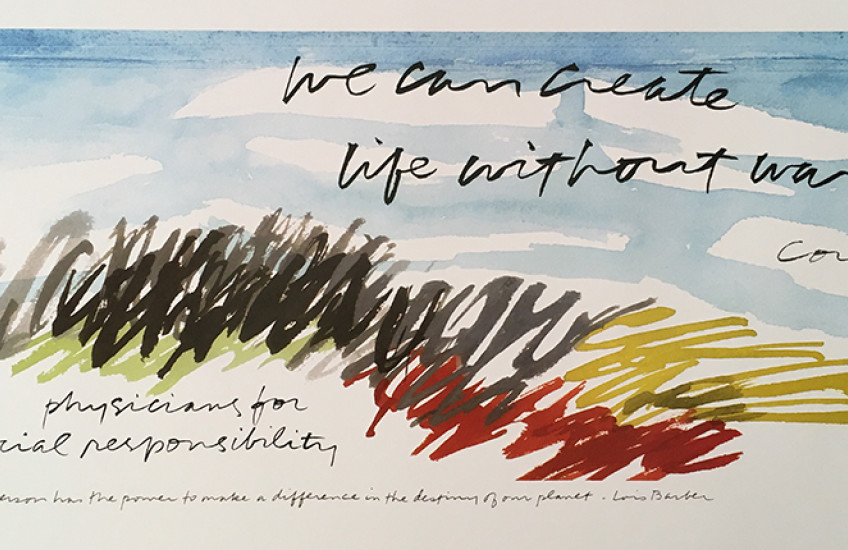 we can create
life without wa
Cor
physicians for
cial responsibility
erson has the power to make a difference in the destiny of our planet . Lois Barber